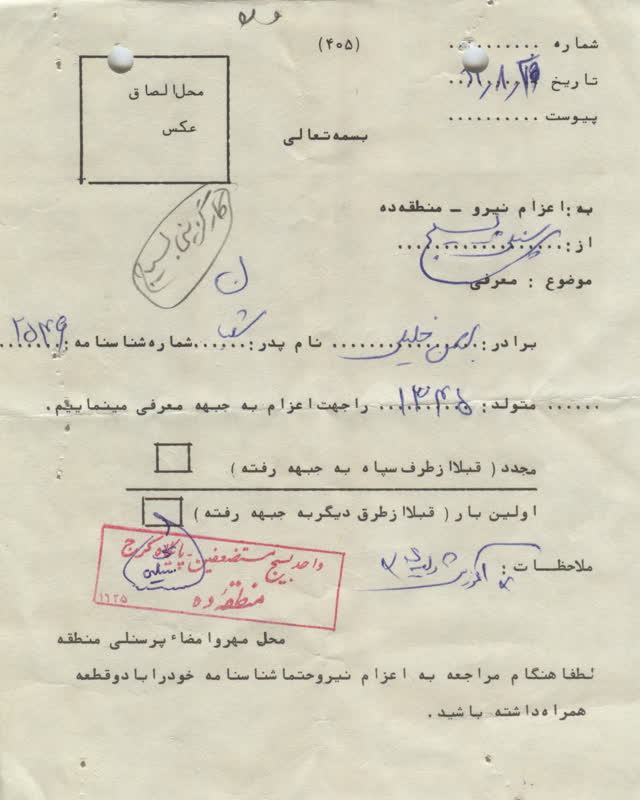 (۴۰۵)
شماره ..........
تاریخ
پیوست ..........
محل الصاق
عکس
بسمه تعالی
به: اعزام نیرو - منطقه ده
کارگزینی بسیج
از: پرسنلی بسیج
موضوع : معرفی
برادر: بهمن خلیلی نام پدر: شعیب شماره شناسنامه: ۲۵۴۹
متولد: ۱۳۴۵ را جهت اعزام به جبهه معرفی مینماییم.
مجدد ( قبلا از طرف سپاه به جبهه رفته )
اولین بار ( قبلا از طرق دیگر به جبهه رفته )
ملاحظات: آموزش
واحد بسیج مستضعفین پایگاه کرج
منطقه ده
محل مهر و امضاء پرسنلی منطقه
لطفا هنگام مراجعه به اعزام نیرو حتما شناسنامه خود را با دو قطعه
همراه داشته باشید.